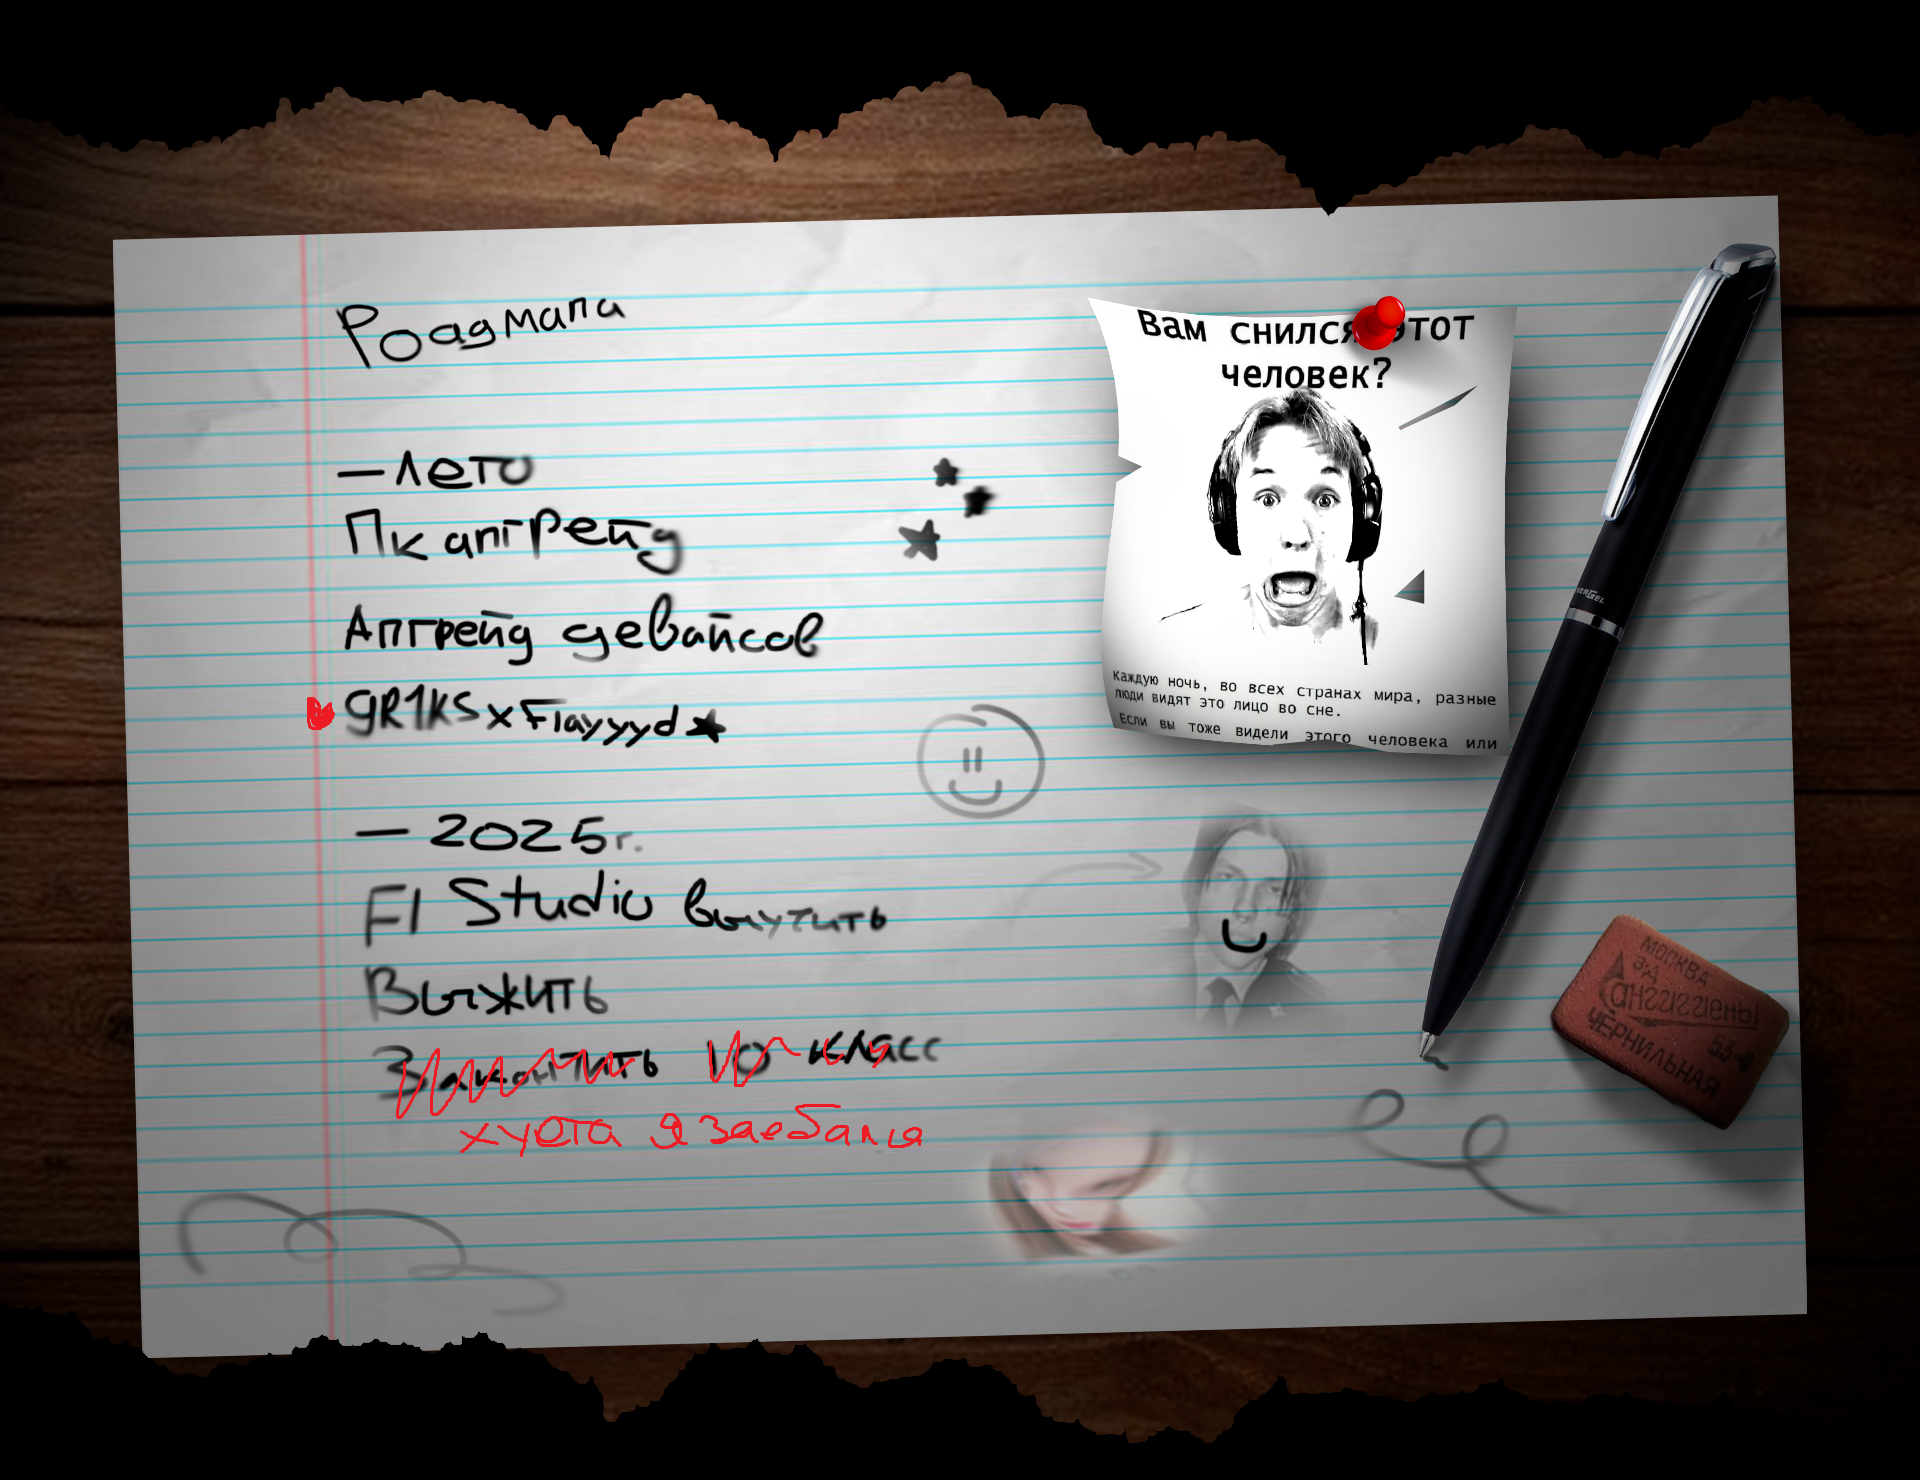 Роадмапа
— Лето
Пк апгрейд
Апгрейд девайсов
gR1KS x Flayyyd
— 2025г.
Fl Studio выучить
Выжить
Закончить 10 класс
хуета я заебался
Вам снился этот
человек?
Каждую ночь, во всех странах мира, разные
люди видят это лицо во сне.
Если вы тоже видели этого человека или
МОСКВА
з-д
ЧЕРНИЛЬНАЯ